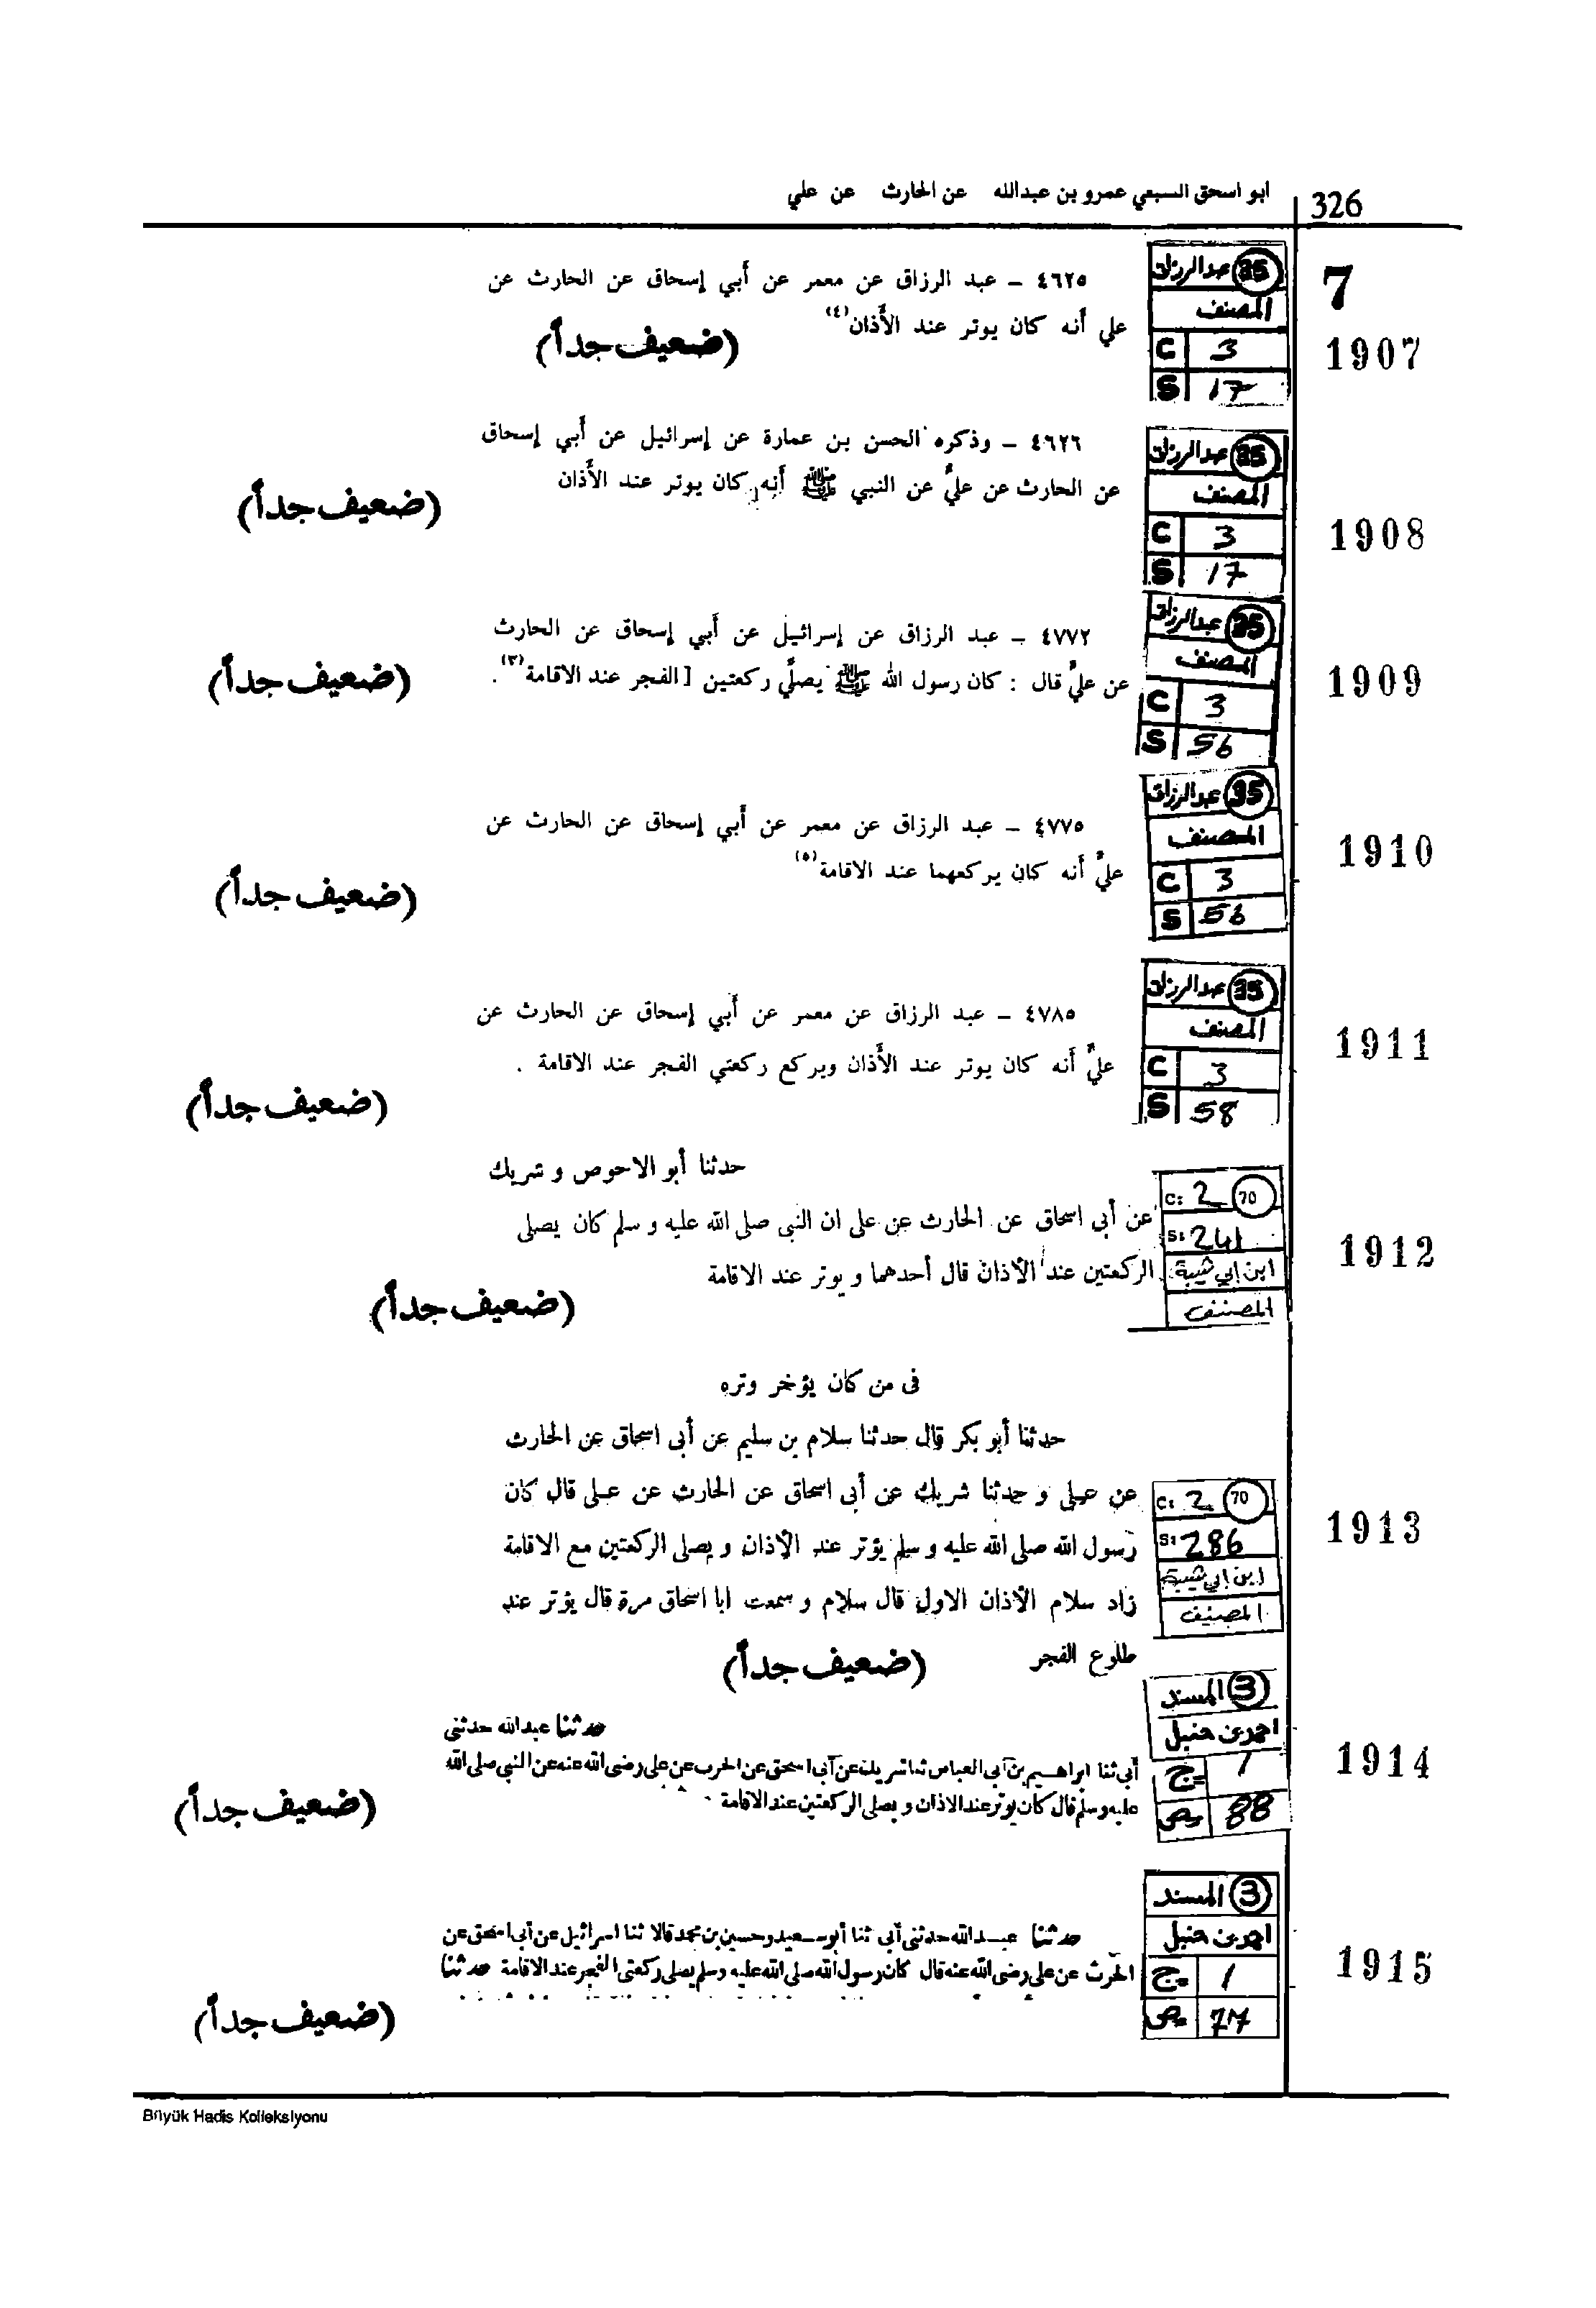 326
ابو اسحق السبعي عمرو بن عبدالله عن الحارث عن علي
7
عبدالرزاق 35
المصنف
C 3
S 17
1907
٤٦٢٥ – عبد الرزاق عن معمر عن أبي إسحاق عن الحارث عن
علي أنه كان يوتر عند الأذان(٤)
(ضعيف جداً)
عبدالرزاق 35
المصنف
C 3
S 17
1908
٤٦٢٦ – وذكره الحسن بن عمارة عن إسرائيل عن أبي إسحاق
عن الحارث عن عليّ عن النبي ﷺ أنه كان يوتر عند الأذان
(ضعيف جداً)
عبدالرزاق 35
المصنف
C 3
S 56
1909
٤٧٧٢ – عبد الرزاق عن إسرائيل عن أبي إسحاق عن الحارث
عن عليّ قال : كان رسول الله ﷺ يصلّي ركعتين [ الفجر عند الاقامة(٣) .
(ضعيف جداً)
عبدالرزاق 35
المصنف
C 3
S 56
1910
٤٧٧٥ – عبد الرزاق عن معمر عن أبي إسحاق عن الحارث عن
عليّ أنه كان يركعهما عند الاقامة(٥)
(ضعيف جداً)
عبدالرزاق 35
المصنف
C 3
S 58
1911
٤٧٨٥ – عبد الرزاق عن معمر عن أبي إسحاق عن الحارث عن
عليّ أنه كان يوتر عند الأذان ويركع ركعتي الفجر عند الاقامة .
(ضعيف جداً)
C: 2 70
S: 241
ابن ابي شيبة
المصنف
1912
حدثنا أبو الاحوص و شريك
عن أبى اسحاق عن الحارث عن على ان النبى صلى الله عليه و سلم كان يصلى
الركعتين عند الأذان قال أحدهما و يوتر عند الاقامة
(ضعيف جداً)
فى من كان يؤخر وتره
حدثنا أبو بكر قال حدثنا سلام بن سليم عن أبى اسحاق عن الحارث
C: 2 70
S: 286
ابن ابي شيبة
المصنف
1913
عن على و حدثنا شريك عن أبى اسحاق عن الحارث عن على قال كان
رسول الله صلى الله عليه و سلم يؤتر عند الأذان و يصلى الركعتين مع الاقامة
زاد سلام الأذان الاول قال سلام و سمعت ابا اسحاق مرة قال يؤتر عند
طلوع الفجر
(ضعيف جداً)
3 المسند
احمد بن حنبل
ج 1
ص 88
1914
حدثنا عبدالله حدثنى
أبى ثنا ابراهيم بن أبى العباس ثنا شريك عن أبى اسحق عن الحرث عن على رضى الله عنه عن النبى صلى الله
عليه وسلم قال كان يوتر عند الاذان و يصلى الركعتين عند الاقامة
(ضعيف جداً)
3 المسند
احمد بن حنبل
ج 1
ص 77
1915
حدثنا عبد الله حدثنى أبى ثنا أبو سعيد وحسين بن محمد قالا ثنا اسرائيل عن أبى اسحق عن
الحرث عن على رضى الله عنه قال كان رسول الله صلى الله عليه وسلم يصلى ركعتى الفجر عند الاقامة حدثنا
(ضعيف جداً)
Büyük Hadis Kolleksiyonu